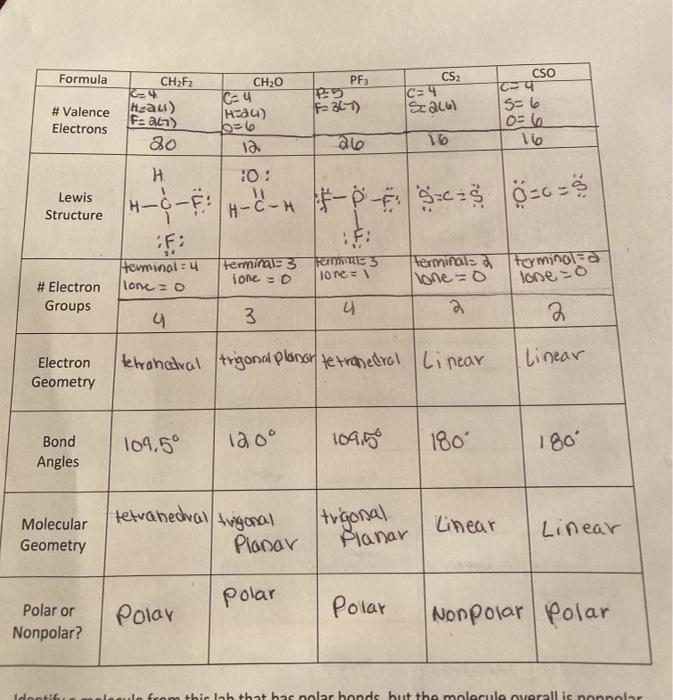 Formula CH₂F₂ CH₂O PF₃ CS₂ CSO
# Valence Electrons
C=4
H=2(1)
F=2(7)
20
C=4
H=2(1)
O=6
12
P=5
F=3(7)
26
C=4
S=2(6)
16
C=4
S=6
O=6
16
Lewis Structure
H
H-C-F:
:F:
:O:
H-C-H
:F-P-F:
:F:
S=C=S
O=C=S
# Electron Groups
terminal=4
lone=0
4
terminal=3
lone=0
3
terminal=3
lone=1
4
terminal=2
lone=0
2
terminal=2
lone=0
2
Electron Geometry
tetrahedral
trigonal planar
tetrahedral
Linear
Linear
Bond Angles
109.5°
120°
109.5°
180°
180°
Molecular Geometry
tetrahedral
trigonal
Planar
trigonal
Planar
Linear
Linear
Polar or Nonpolar?
Polar
polar
Polar
Nonpolar
polar
Identify a molecule from this lab that has polar bonds, but the molecule overall is nonpolar